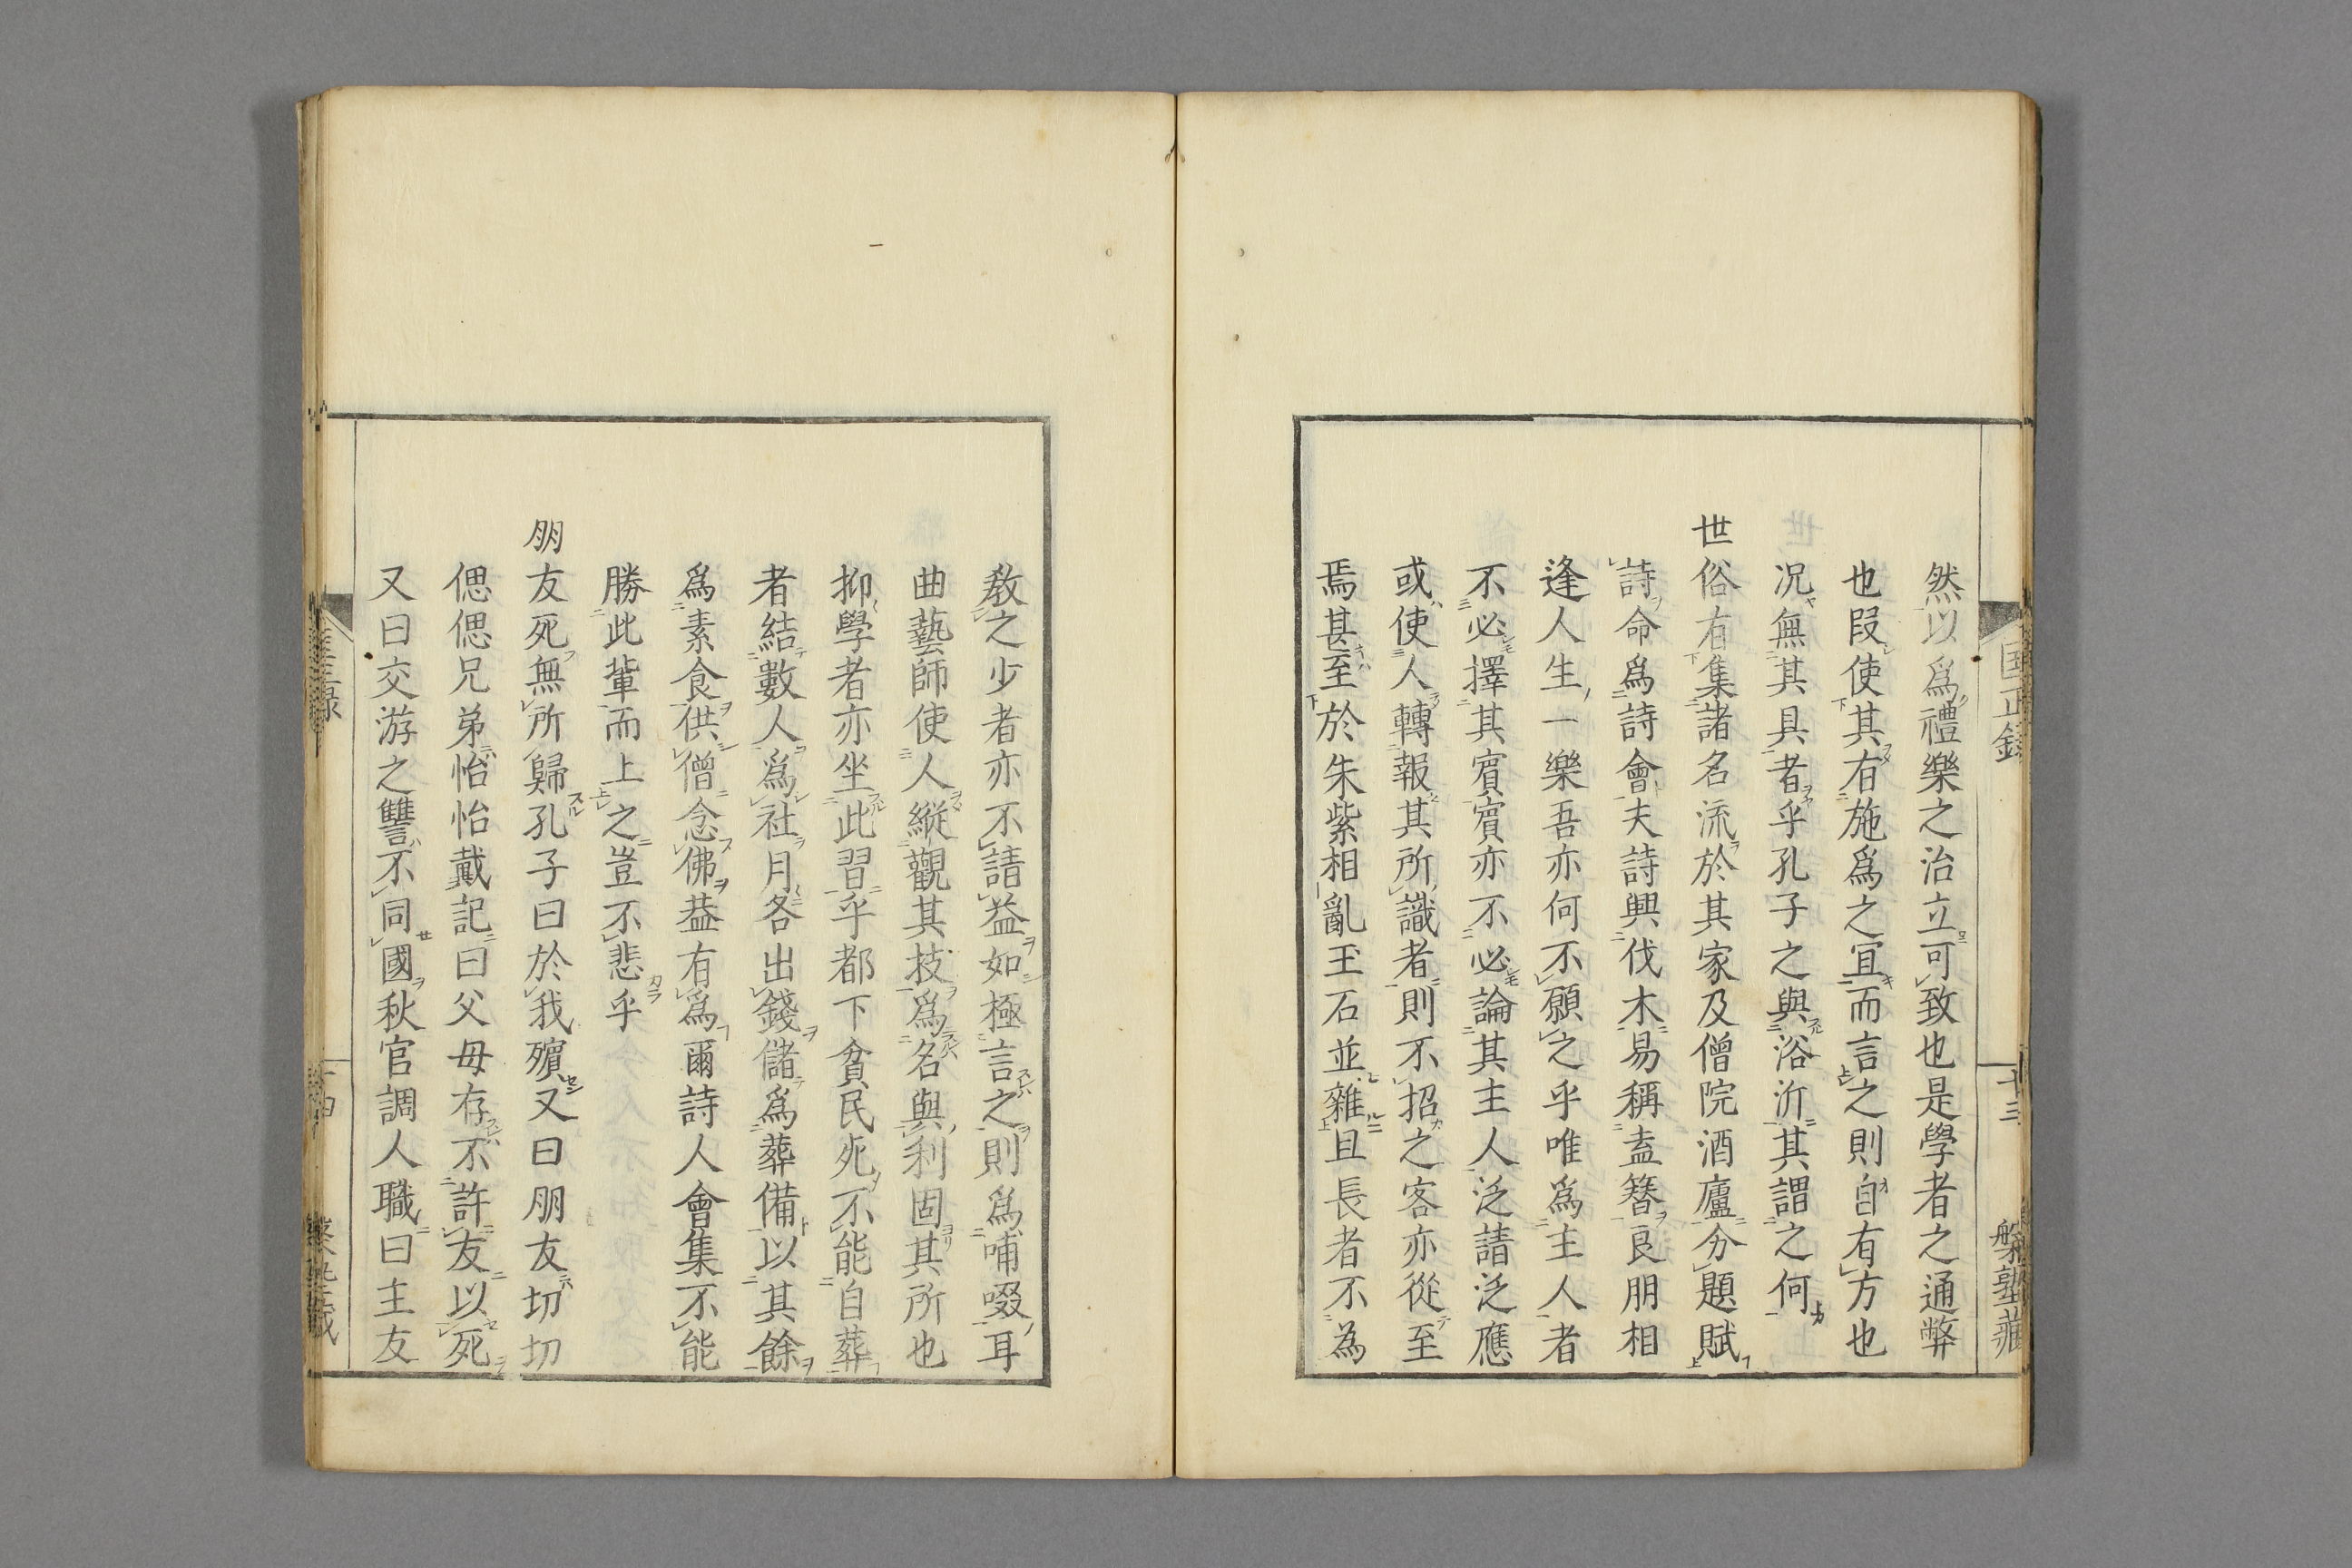 然以爲禮樂之治立可致也是學者之通弊
也叚使其有施爲之宜而言之則自有方也
况無其具者乎孔子之與浴沂其謂之何
世俗有集諸名流於其家及僧院酒廬分題賦
詩命爲詩會夫詩興伐木易稱盍簪良朋相
逢人生一樂吾亦何不願之乎唯爲主人者
不必擇其賓賓亦不必論其主人泛請泛應
或使人轉報其所識者則不招之客亦從至
焉甚至於朱紫相亂玉石並雜且長者不為
十三
槃塾藏
教之少者亦不請益如極言之則爲哺啜耳
曲藝師使人縱觀其技爲名與利固其所也
抑學者亦坐此習乎都下貧民死不能自葬
者結數人爲社月各出錢儲爲葬備以其餘
爲素食供僧念佛葢有爲爾詩人會集不能
勝此輩而上之豈不悲乎
朋友死無所歸孔子曰於我殯又曰朋友切切
偲偲兄弟怡怡戴記曰父毋存不許友以死
又曰交游之讐不同國秋官調人職曰主友